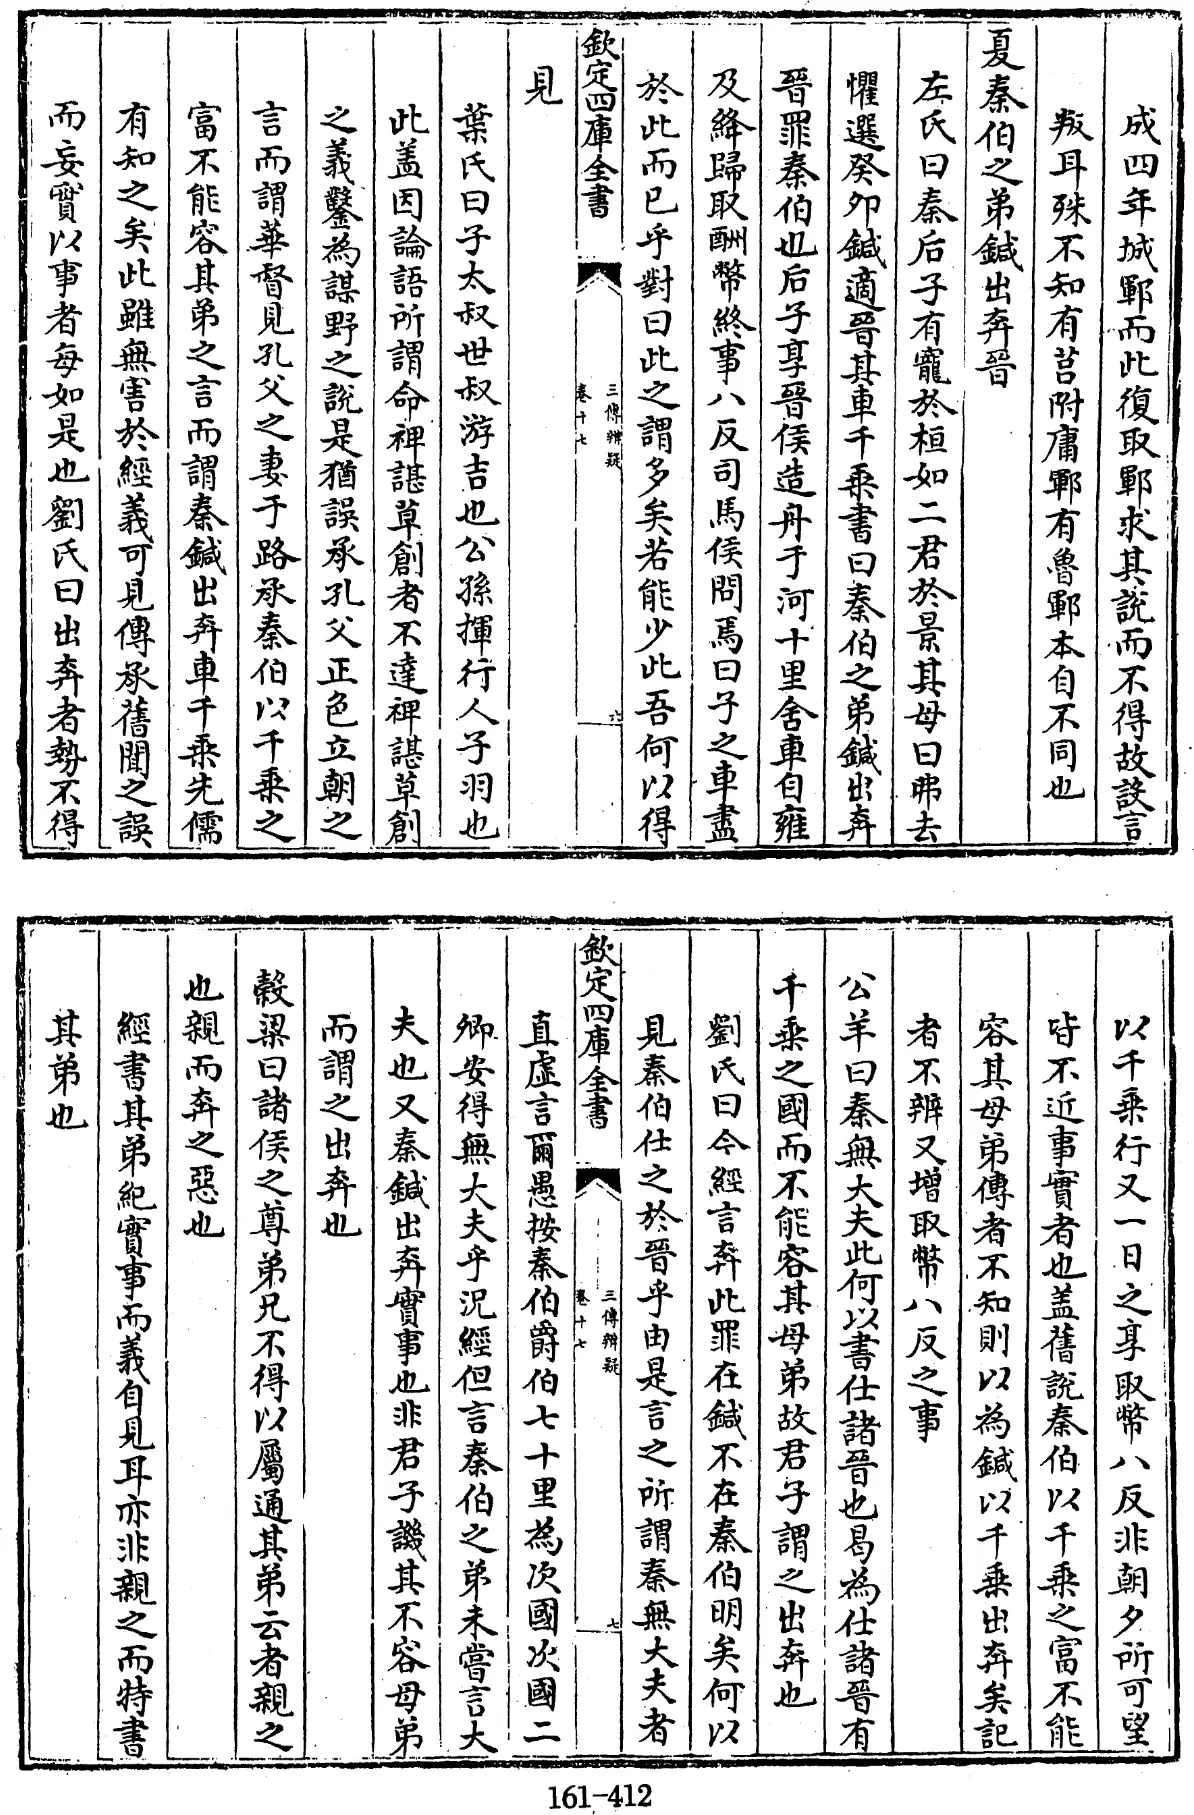 成四年城鄆而此復取鄆求其說而不得故設言
叛耳殊不知有莒附庸鄆有魯鄆本自不同也
夏秦伯之弟鍼出奔晉
左氏曰秦后子有寵於桓如二君於景其母曰弗去
懼選癸卯鍼適晉其車千乘書曰秦伯之弟鍼出奔
晉罪秦伯也后子享晉侯造舟于河十里舍車自雍
及絳歸取酬幣終事八反司馬侯問焉曰子之車盡
於此而已乎對曰此之謂多矣若能少此吾何以得
欽定四庫全書
三傳辨疑
卷十七
六
見
葉氏曰子太叔世叔游吉也公孫揮行人子羽也
此盖因論語所謂命裨諶草創者不達裨諶草創
之義鑿為謀野之說是猶誤承孔父正色立朝之
言而謂華督見孔父之妻于路承秦伯以千乘之
富不能容其弟之言而謂秦鍼出奔車千乘先儒
有知之矣此雖無害於經義可見傳承舊聞之誤
而妄實以事者每如是也劉氏曰出奔者勢不得
以千乘行又一日之享取幣八反非朝夕所可望
皆不近事實者也盖舊說秦伯以千乘之富不能
容其母弟傳者不知則以為鍼以千乘出奔矣記
者不辨又增取幣八反之事
公羊曰秦無大夫此何以書仕諸晉也曷為仕諸晉有
千乘之國而不能容其母弟故君子謂之出奔也
劉氏曰今經言奔此罪在鍼不在秦伯明矣何以
見秦伯仕之於晉乎由是言之所謂秦無大夫者
欽定四庫全書
三傳辨疑
卷十七
七
直虛言爾愚按秦伯爵伯七十里為次國次國二
卿安得無大夫乎況經但言秦伯之弟未嘗言大
夫也又秦鍼出奔實事也非君子譏其不容母弟
而謂之出奔也
穀梁曰諸侯之尊弟兄不得以屬通其弟云者親之
也親而奔之惡也
經書其弟紀實事而義自見耳亦非親之而特書
其弟也
161-412